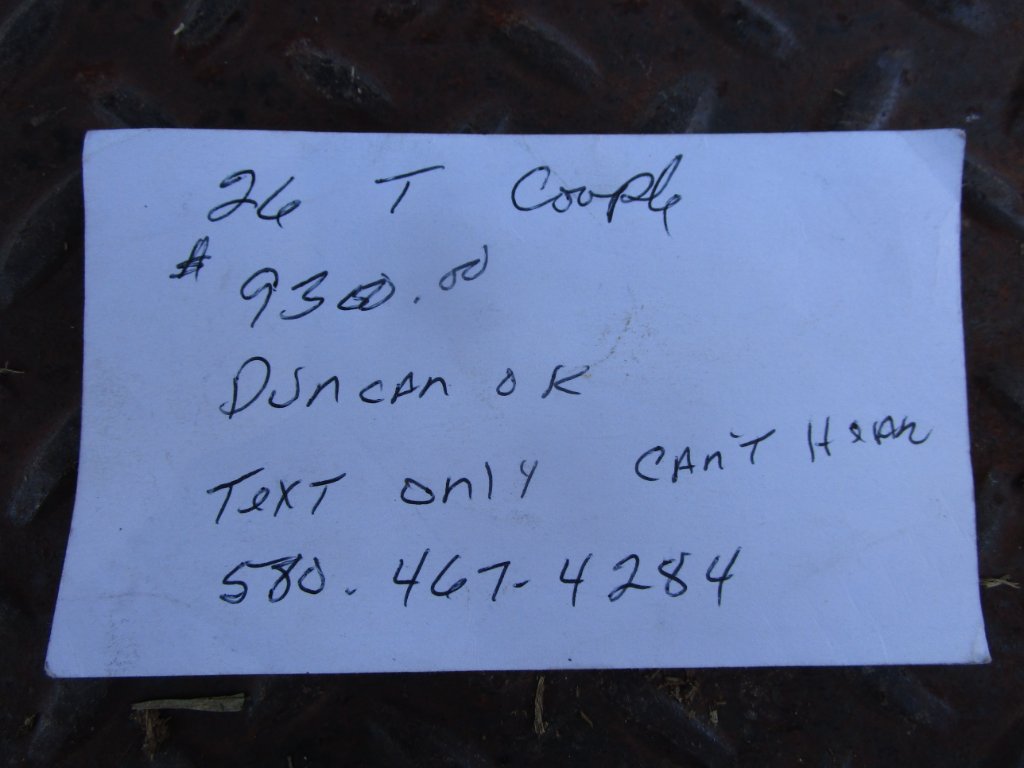 26 T Coople
$ 9300.00
Duncan OK
Text only can't Hear
580.467-4284